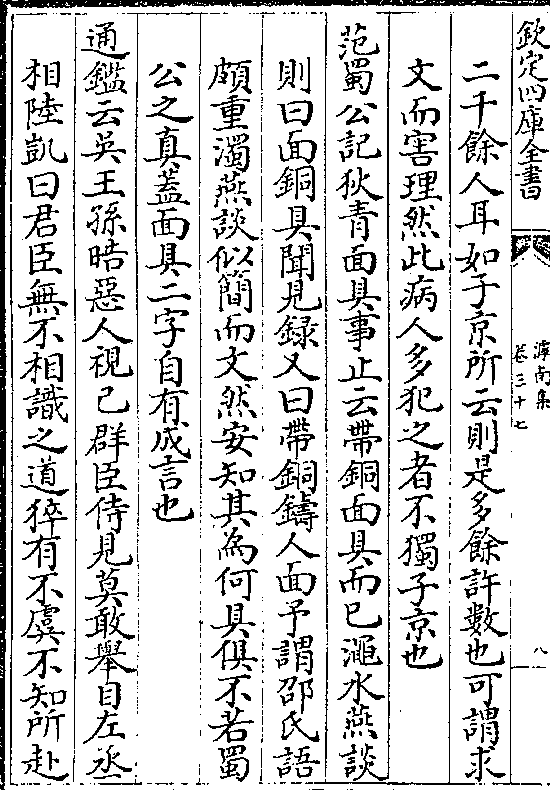 欽定四庫全書
滹南集
卷三十七
八
二千餘人耳如子京所云則是多餘許數也可謂求
文而害理然此病人多犯之者不獨子京也
范蜀公記狄青面具事止云帶銅面具而已澠水燕談
則曰面銅具聞見録又曰帶銅鑄人面予謂邵氏語
頗重濁燕談似簡而文然安知其為何具俱不若蜀
公之真蓋面具二字自有成言也
通鑑云吳王孫晧惡人視己群臣侍見莫敢舉目左丞
相陸凱曰君臣無不相識之道猝有不虞不知所赴